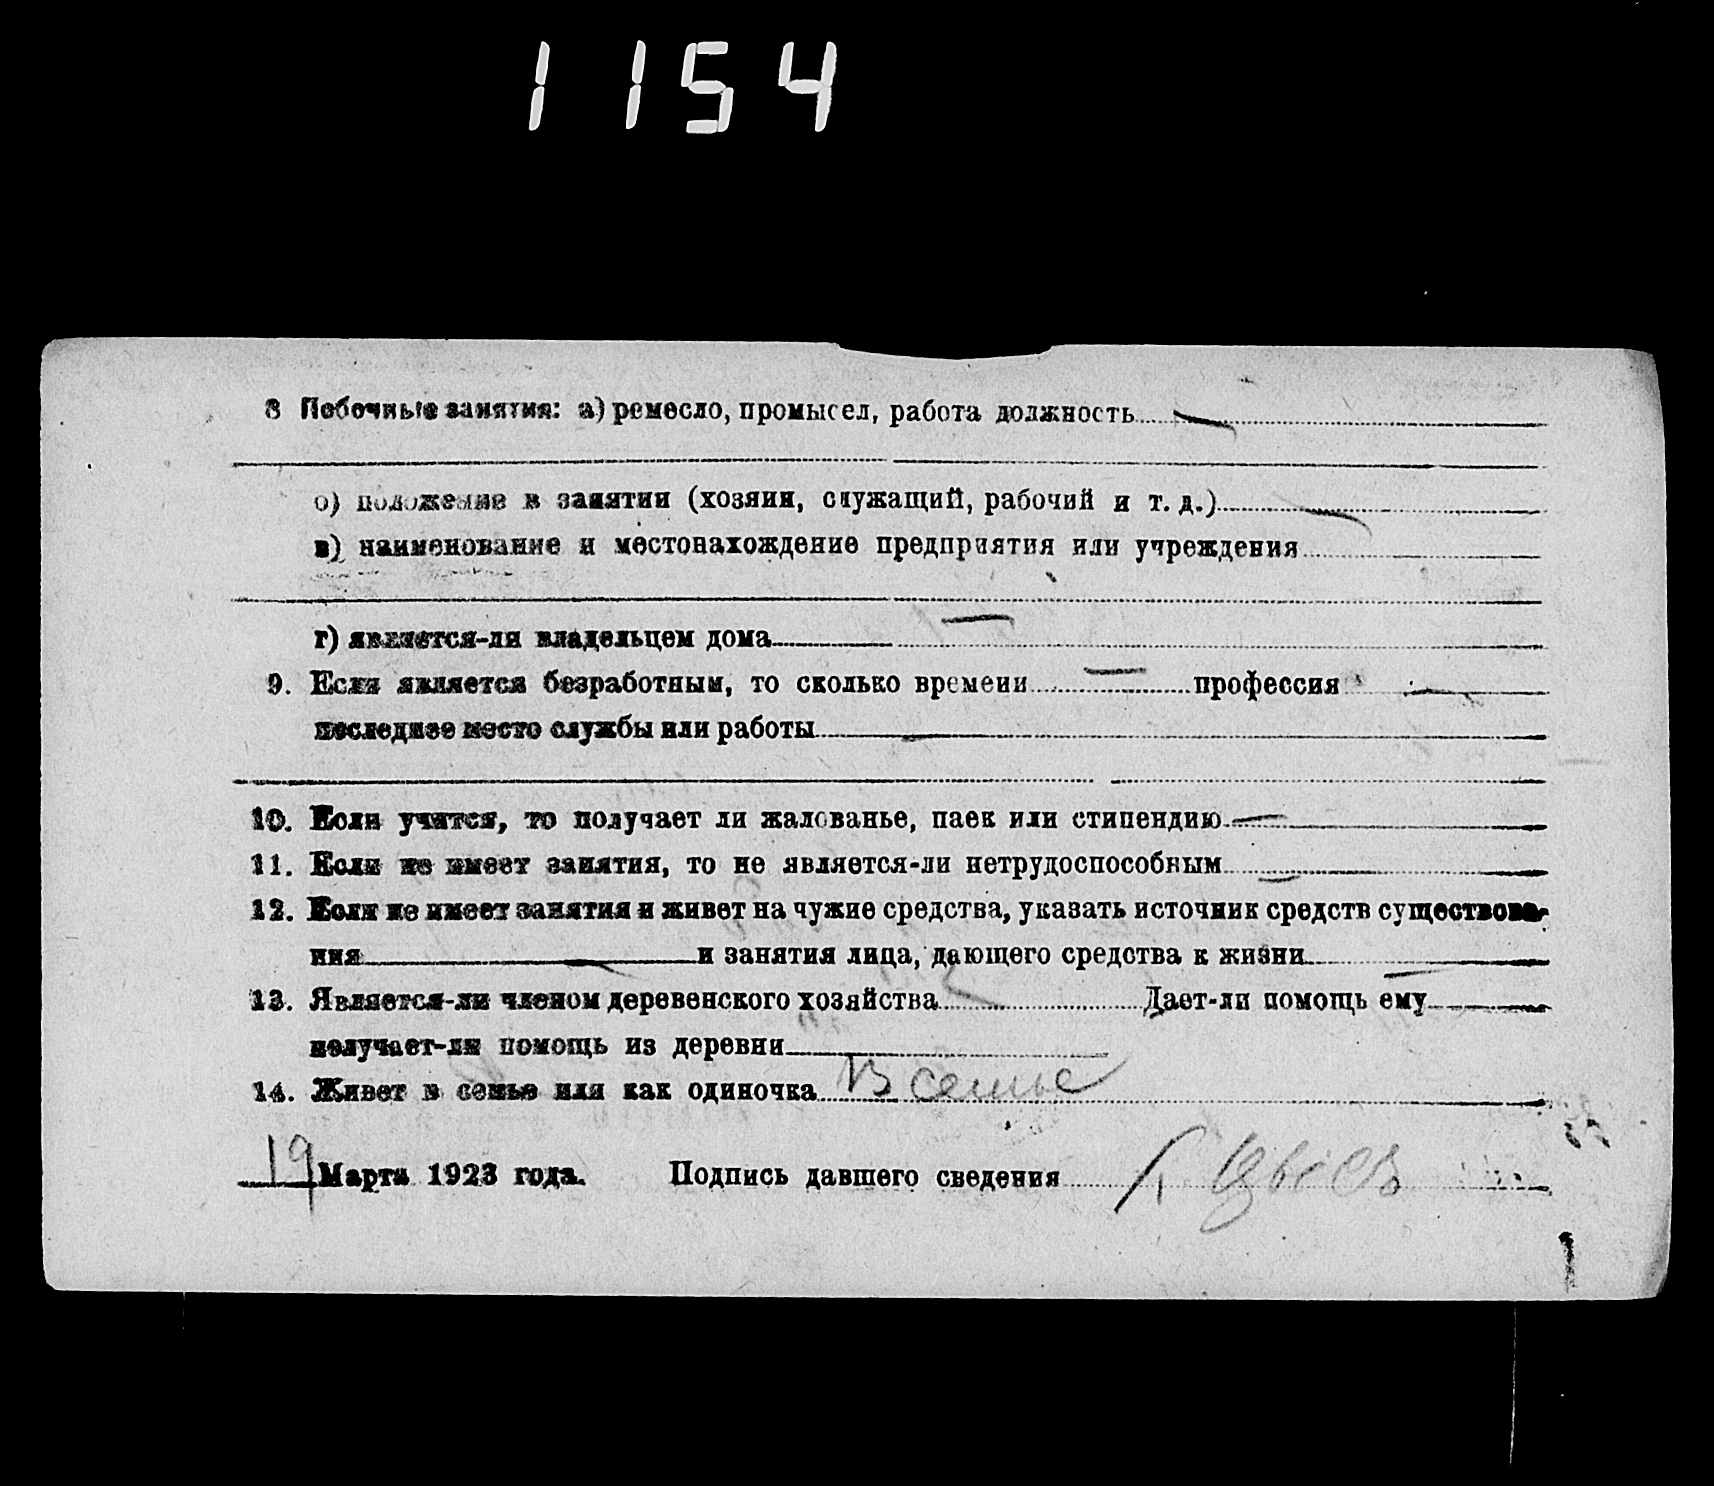 1154
8 Побочные занятия: а) ремесло, промысел, работа должность
б) положение в занятии (хозяин, служащий, рабочий и т. д.)
в) наименование и местонахождение предприятия или учреждения
г) является-ли владельцем дома
9. Если является безработным, то сколько времени профессия
последнее место службы или работы
10. Если учится, то получает ли жалованье, паек или стипендию
11. Если не имеет занятия, то не является-ли нетрудоспособным
12. Если не имеет занятия и живет на чужие средства, указать источник средств существова-
ния и занятия лица, дающего средства к жизни
13. Является-ли членом деревенского хозяйства Дает-ли помощь ему
получает-ли помощь из деревни
14. Живет в семье или как одиночка В семье
19 Марта 1923 года. Подпись давшего сведения